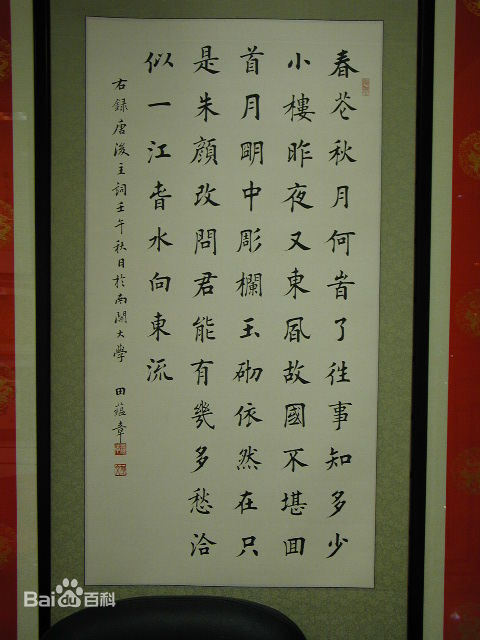 春花秋月何旹了往事知多少
小樓昨夜又東凬故國不堪囬
首月明中彫欄玉砌依然在只
是朱顔改問君能有幾多愁洽
似一江旾水向東流
右録唐後主詞壬午秋日於南開大學 田蘊章
Baidu百科